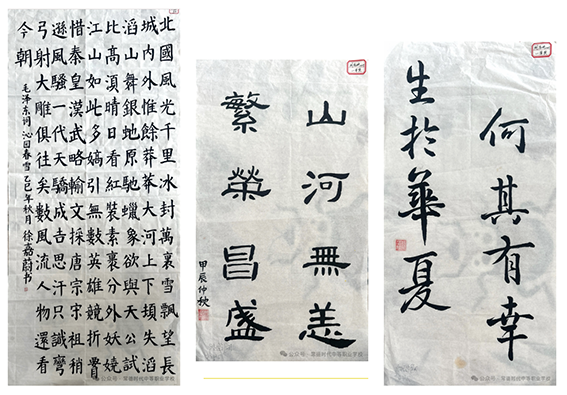 北國風光千里冰封萬裏雪飄望長
城内外惟餘莽莽大河上下頓失滔
滔山舞銀蛇原馳蠟象欲與天公試
比高須晴日看紅裝素裹分外妖嬈
江山如此多嬌引無數英雄競折腰
惜秦皇漢武略輸文采唐宗宋祖稍
遜風騷一代天驕成吉思汗只識彎
弓射大雕俱往矣數風流人物還看
今朝
毛泽东词 沁园春雪 乙巳年秋月 徐嘉蔚书
山河無恙
繁榮昌盛
甲辰仲秋
何其有幸
生於華夏
公众号
公众号
公众号